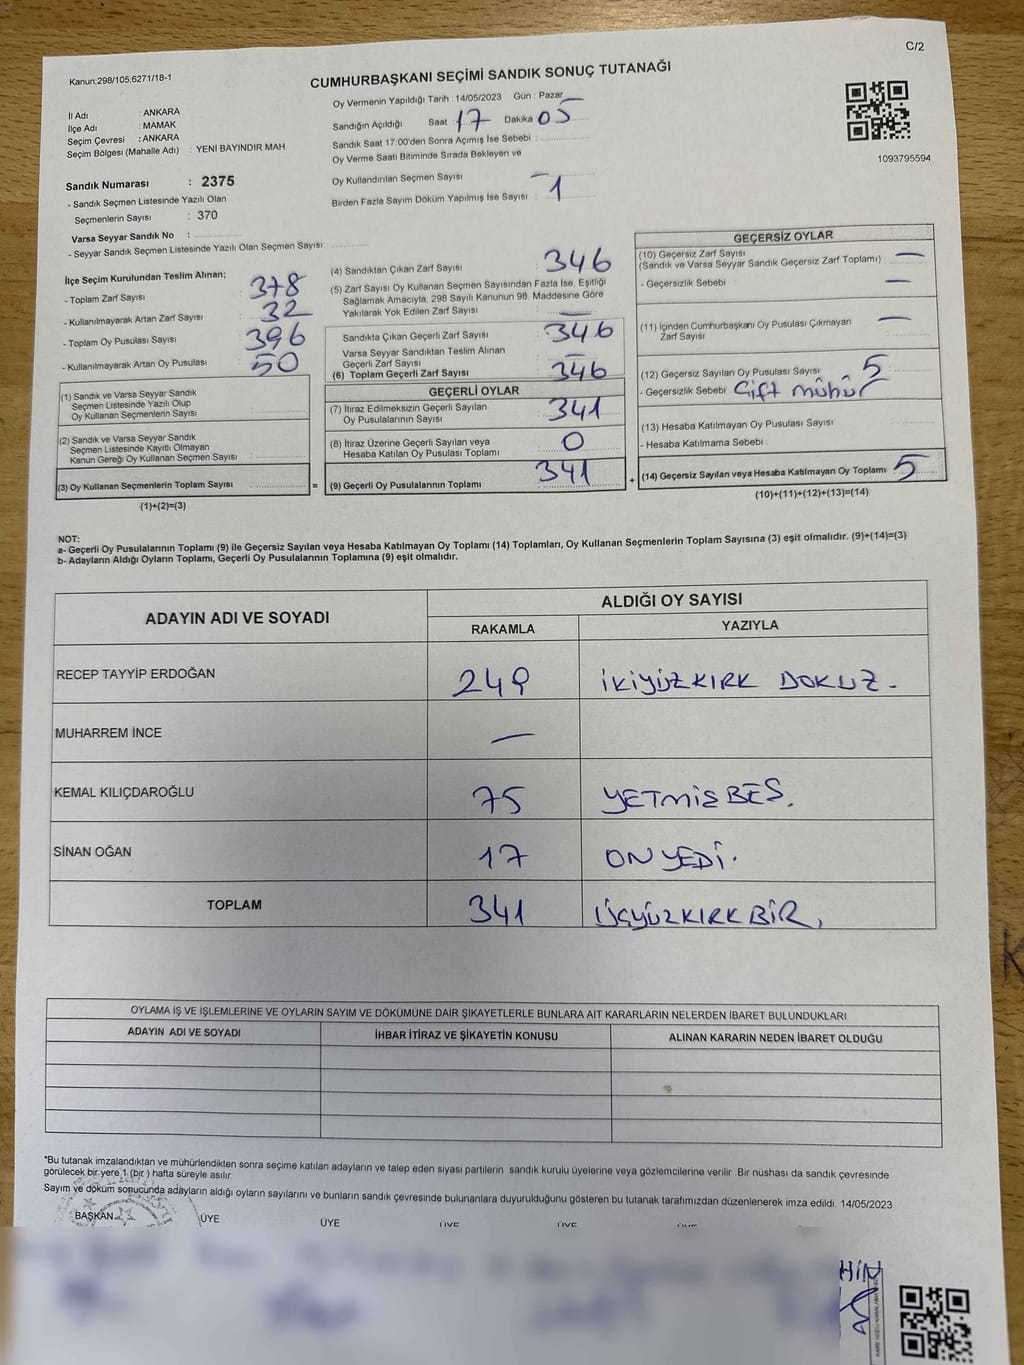 C/2
Kanun:298/105;6271/18-1
CUMHURBAŞKANI SEÇİMİ SANDIK SONUÇ TUTANAĞI
İl Adı : ANKARA
İlçe Adı : MAMAK
Seçim Çevresi : ANKARA
Seçim Bölgesi (Mahalle Adı) : YENİ BAYINDIR MAH
Sandık Numarası : 2375
- Sandık Seçmen Listesinde Yazılı Olan
Seçmenlerin Sayısı : 370
Varsa Seyyar Sandık No :
- Seyyar Sandık Seçmen Listesinde Yazılı Olan Seçmen Sayısı:
Oy Vermenin Yapıldığı Tarih : 14/05/2023 Gün : Pazar
Sandığın Açıldığı Saat 17 Dakika 05
Sandık Saat 17:00'den Sonra Açımış İse Sebebi :
Oy Verme Saati Bitiminde Sırada Bekleyen ve
Oy Kullandırılan Seçmen Sayısı —
Birden Fazla Sayım Döküm Yapılmış İse Sayısı : 1
1093795594
İlçe Seçim Kurulundan Teslim Alınan;
- Toplam Zarf Sayısı : 378
- Kullanılmayarak Artan Zarf Sayısı : 32
- Toplam Oy Pusulası Sayısı : 396
- Kullanılmayarak Artan Oy Pusulası : 50
(1) Sandık ve Varsa Seyyar Sandık
Seçmen Listesinde Yazılı Olup
Oy Kullanan Seçmenlerin Sayısı :
(2) Sandık ve Varsa Seyyar Sandık
Seçmen Listesinde Kayıtlı Olmayan
Kanun Gereği Oy Kullanan Seçmen Sayısı :
(3) Oy Kullanan Seçmenlerin Toplam Sayısı : =
(1)+(2)=(3)
(4) Sandıktan Çıkan Zarf Sayısı : 346
(5) Zarf Sayısı Oy Kullanan Seçmen Sayısından Fazla İse, Eşitliği
Sağlamak Amacıyla, 298 Sayılı Kanunun 98. Maddesine Göre
Yakılarak Yok Edilen Zarf Sayısı : —
Sandıkta Çıkan Geçerli Zarf Sayısı : 346
Varsa Seyyar Sandıktan Teslim Alınan
Geçerli Zarf Sayısı : —
(6) Toplam Geçerli Zarf Sayısı : 346
GEÇERLİ OYLAR
(7) İtiraz Edilmeksizin Geçerli Sayılan
Oy Pusulalarının Sayısı : 341
(8) İtiraz Üzerine Geçerli Sayılan veya
Hesaba Katılan Oy Pusulası Toplamı : 0
(9) Geçerli Oy Pusulalarının Toplamı : 341 +
GEÇERSİZ OYLAR
(10) Geçersiz Zarf Sayısı
(Sandık ve Varsa Seyyar Sandık Geçersiz Zarf Toplamı) : —
- Geçersizlik Sebebi : —
(11) İçinden Cumhurbaşkanı Oy Pusulası Çıkmayan
Zarf Sayısı : —
(12) Geçersiz Sayılan Oy Pusulası Sayısı : 5
- Geçersizlik Sebebi : Çift mühür
(13) Hesaba Katılmayan Oy Pusulası Sayısı :
- Hesaba Katılmama Sebebi :
(14) Geçersiz Sayılan veya Hesaba Katılmayan Oy Toplamı : 5
(10)+(11)+(12)+(13)=(14)
NOT:
a- Geçerli Oy Pusulalarının Toplamı (9) ile Geçersiz Sayılan veya Hesaba Katılmayan Oy Toplamı (14) Toplamları, Oy Kullanan Seçmenlerin Toplam Sayısına (3) eşit olmalıdır. (9)+(14)=(3)
b- Adayların Aldığı Oyların Toplamı, Geçerli Oy Pusulalarının Toplamına (9) eşit olmalıdır.
ADAYIN ADI VE SOYADI
ALDIĞI OY SAYISI
RAKAMLA YAZIYLA
RECEP TAYYİP ERDOĞAN 249 İKİYÜZKIRK DOKUZ.
MUHARREM İNCE —
KEMAL KILIÇDAROĞLU 75 YETMİŞBEŞ.
SİNAN OĞAN 17 ONYEDİ.
TOPLAM 341 ÜÇYÜZKIRKBİR,
OYLAMA İŞ VE İŞLEMLERİNE VE OYLARIN SAYIM VE DÖKÜMÜNE DAİR ŞİKAYETLERLE BUNLARA AİT KARARLARIN NELERDEN İBARET BULUNDUKLARI
ADAYIN ADI VE SOYADI İHBAR İTİRAZ VE ŞİKAYETİN KONUSU ALINAN KARARIN NEDEN İBARET OLDUĞU
*Bu tutanak imzalandıktan ve mühürlendikten sonra seçime katılan adayların ve talep eden siyasi partilerin sandık kurulu üyelerine veya gözlemcilerine verilir. Bir nüshası da sandık çevresinde
görülecek bir yere 1 (bir) hafta süreyle asılır.
Sayım ve döküm sonucunda adayların aldığı oyların sayılarını ve bunların sandık çevresinde bulunanlara duyurulduğunu gösteren bu tutanak tarafımızdan düzenlenerek imza edildi. 14/05/2023
BAŞKAN ÜYE ÜYE ÜYE ÜYE ÜYE
HİN